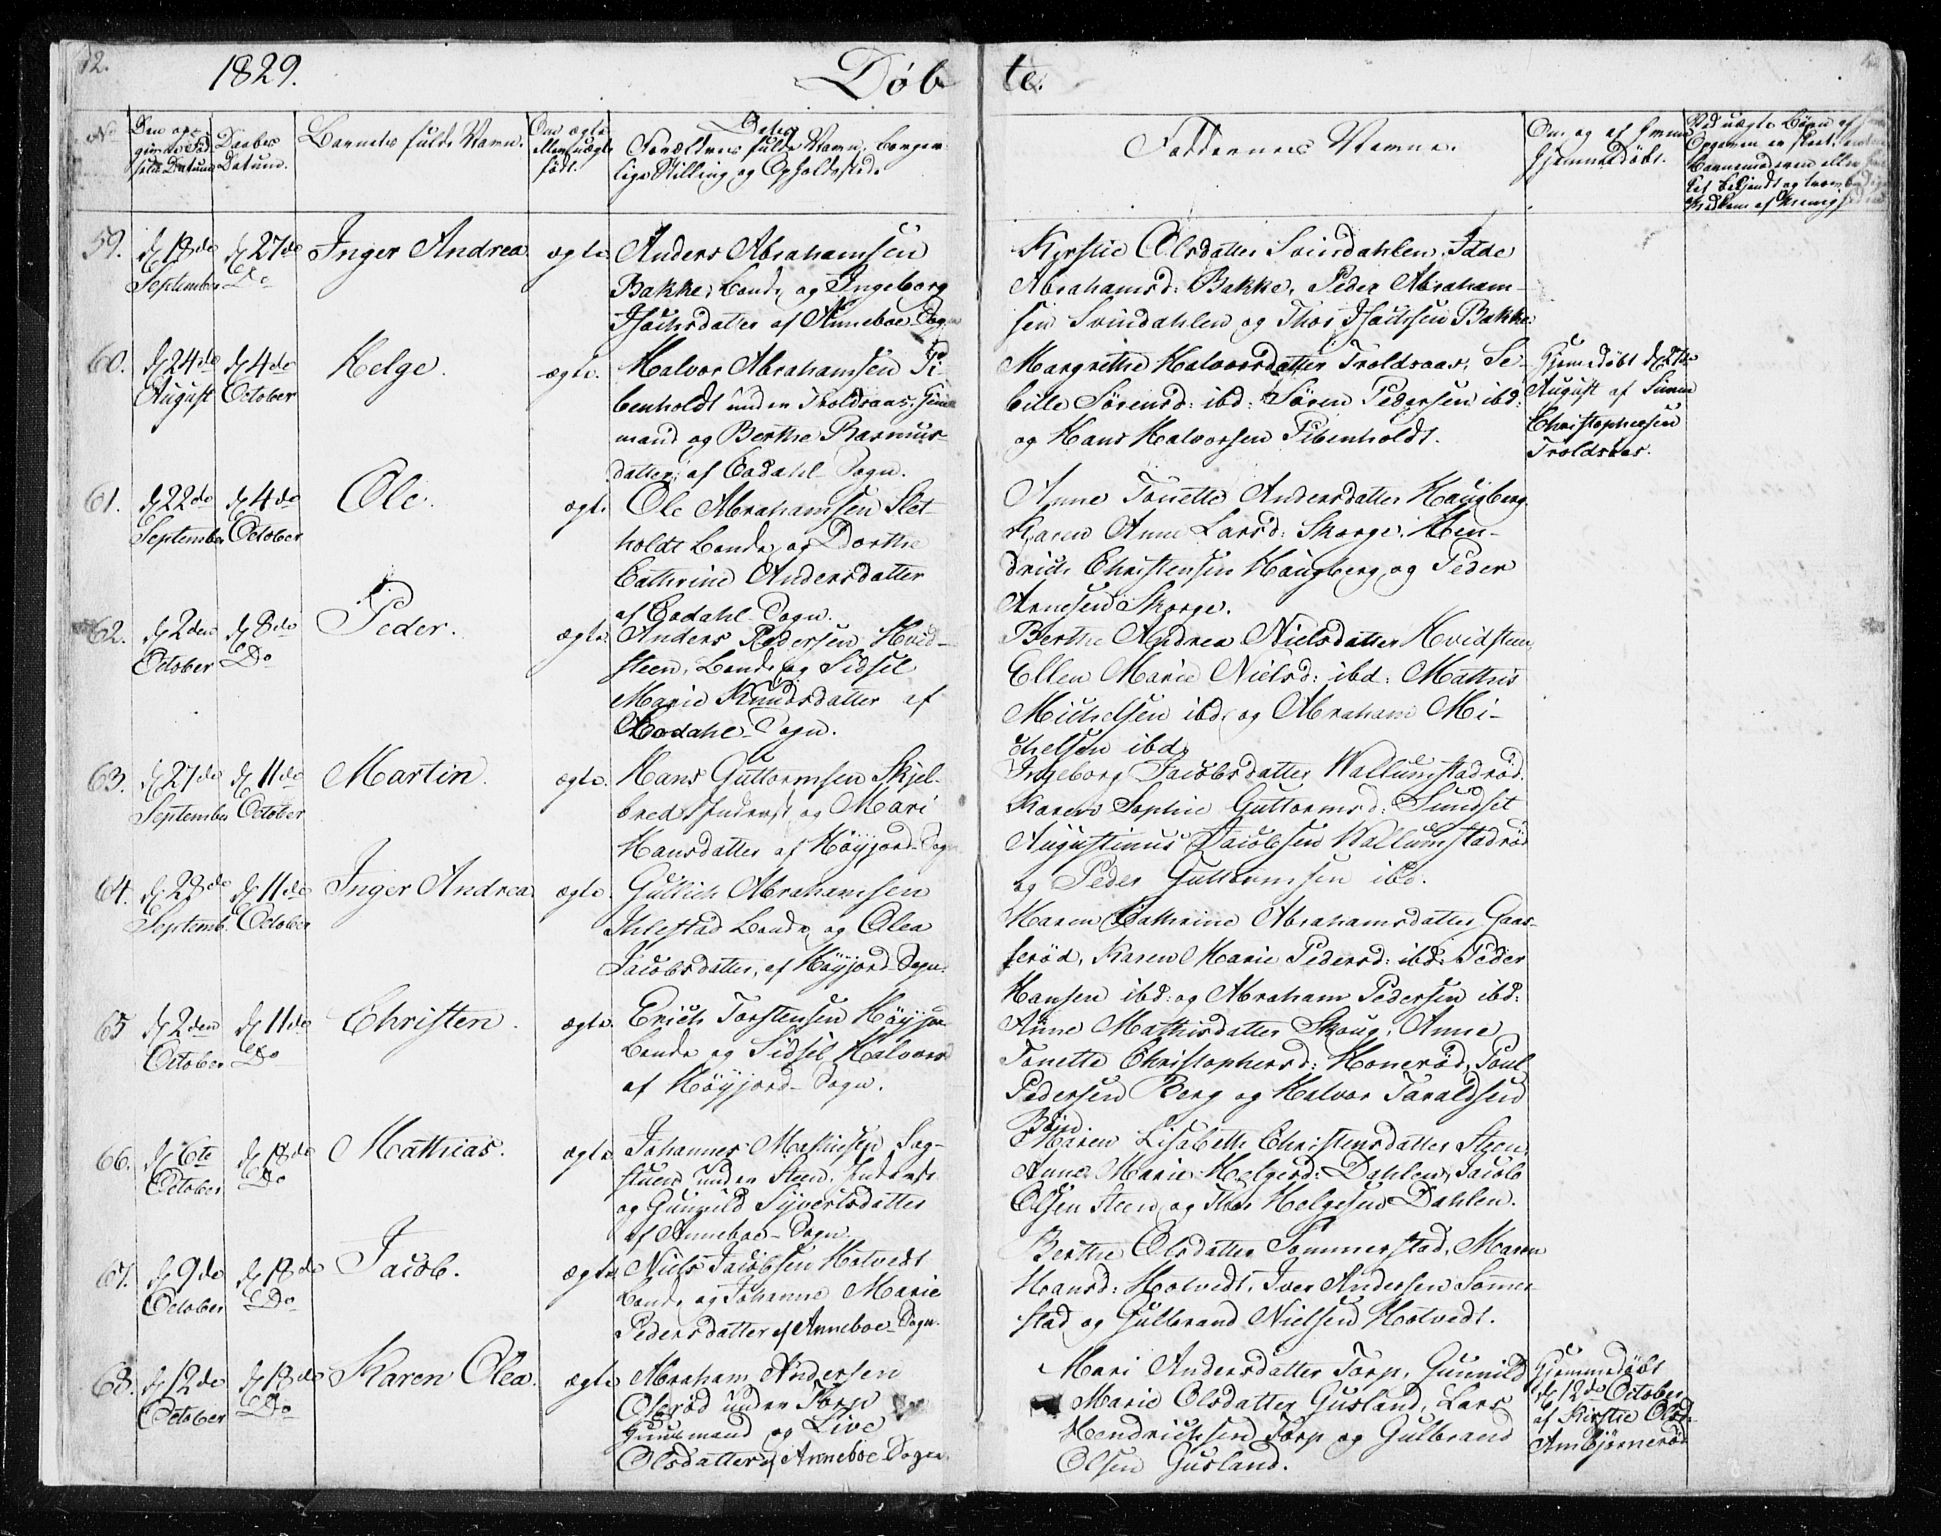 12.
1829.
Døbte.
No
Den opgivne Fødsels Datum
Daabes Datum.
Barnets fulde Navn.
Om ægte eller uægte født.
Forældres fulde Navn, borgerlige Stilling og Opholdssted.
Faddernes Navne.
Om og af hvem hjemmedøbt.
59.
d 18de September
d 27de Do
Inger Andrea
ægte
Anders Abrahamsen
Bakke, bonde og Ingeborg
Isachsdatter af Anneboe Sogn
Kirstie Olsdatter Svindahlen, Idde
Abrahamsd: Bakke, Peder Abraham-
sen Svindahlen og Thor Isachsen Bakke
60.
d 24de August
d 4de October
Helge.
ægte.
Halvor Abrahamsen Pi-
benholdt under Troldsaas,
mand og Berthe Rasmus-
datter, af Sogn.
Margrethe Halvorsdatter Troldsaas, Se-
bille Sørensd: ibd: Søren Pedersen ibd:
og Hans Halvorsen Pibenholdt.
Hjemedøbt d 27de
August af
Christophersen
Troldsaas.
61.
d 22de September
d 4de October
Ole.
ægte
Ole Abrahamsen Slet-
holdt bonde og Dorthe
Cathrine Andersdatter
af Sogn.
Anne Tonette Andersdatter Haugberg
Karen Anne Larsd: Skorge, Hen-
drich Christensen Haugberg og Peder
Arnesen Skorge.
62.
d 2den October
d 8de Do
Peder.
ægte
Anders Pedersen Hvid-
steen, bonde og Sidsel
Marie Knudsdatter af
Sogn.
Berthe Andrea Nielsdatter Hvidsteen,
Ellen Marie Nielsd: ibd: Mathis
Michelsen ibd: og Abraham Mi-
chelsen ibd:
63.
d 27de September
d 11de October
Martin.
ægte.
Hans Guttormsen Skjel-
bred Inderst og Mari
Hansdatter af Høyjord Sogn
Ingeborg Jacobsdatter Wallumstadrød
Karen Sophie Guttormsd: Sundset
Augustinus Jacobsen Wallumstadrød
og Peder Guttormsen ibd.
64.
d 28de Septemb.
d 11de October
Inger Andrea
ægte.
Gullich Abrahamsen
Ihlestad bonde og Olea
Jacobsdatter, af Høyjord Sogn.
Maren Cathrine Abrahamsdatter Gaas-
serød, Karen Marie Pedersd: ibd: Peder
Hansen ibd: og Abraham Pedersen ibd:
65
d 2den October
d 11de Do
Christen.
ægte.
Erich Torstensen Høyjor
bonde og Sidsel Halvors
af Høyjord Sogn.
Anne Mathisdatter Skoug, Anne
Tonette Christophersd: Honerød, Poul
Pedersen Berg og Halvor Taraldsen
Bøen
66.
d 6te October
d 18de Do
Mathias.
ægte
Johannes Mathisen Sag-
stuen under Steen, Inderst
og Gunnild Syvertsdatter
af Anneboe Sogn.
Maren Lisabeth Christensdatter Steen,
Anne Marie Helgesd: Dahlen, Jacob
Olsen Steen og Thor Helgesen Dahlen.
67.
d 9de October
d 18de Do
Jacob.
ægte
Niels Jacobsen Hotvedt
bonde og Johanne Marie
Pedersdatter af Anneboe Sogn.
Berthe Olsdatter Sommerstad, Maren
Hansd: Hotvedt, Iver Andersen Sommer-
stad og Gulbrand Nielsen Hotvedt.
68.
d 12de October
d 18de Do
Karen Olea.
ægte
Abraham Andersen
Olsrød under Torp
og Live
Olsdatter af Anneboe Sogn.
Mari Andersdatter Torp, Gunnild
Marie Olsdatter Gusland, Lars
Hendrichsen Torp og Gulbrand
Olsen Gusland.
Hjemmedøbt
d 12de October
af Kirstie Olsd.
Ambjørnerød